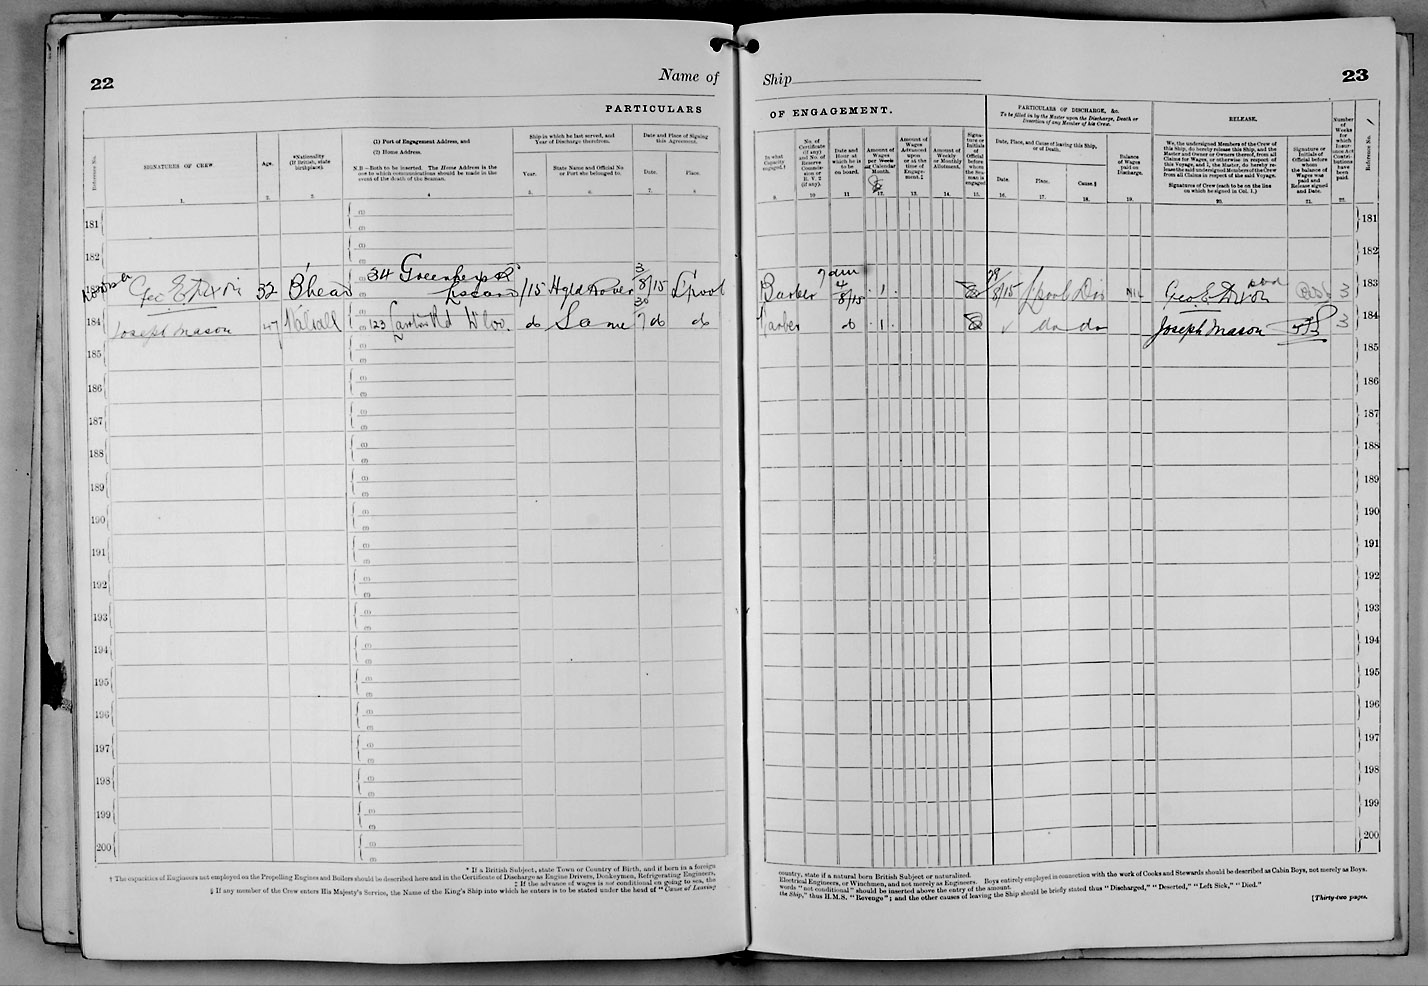 22
Name of
Ship
23
PARTICULARS
OF ENGAGEMENT.
Reference No.
SIGNATURES OF CREW.
1.
Age.
2.
*Nationality
(If British, state
birthplace).
3.
(1) Port of Engagement Address, and
(2) Home Address.
N.B.—Both to be inserted. The Home Address is the
one to which communications should be made in the
event of the death of the Seaman.
4
Ship in which he last served, and
Year of Discharge therefrom.
Year.
5.
State Name and Official No
or Port she belonged to.
6.
Date and Place of Signing
this Agreement.
Date.
7.
Place.
8
In what
Capacity
engaged.†
9.
No. of
Certificate
(if any)
and No. of
Reserve
Commis-
sion or
R. V. 2
(if any).
10
Date and
Hour at
which he is
on board.
11
Amount of
Wages
per Week
or Calendar
Month.
12.
Amount of
Wages
Advanced
upon
or at the
time of
Engage-
ment.‡
13.
Amount of
Weekly
or Monthly
Allotment.
14.
Signa-
ture or
Initials
of
Official
before
whom
the Sea-
man is
engaged
15.
PARTICULARS OF DISCHARGE, &c.
To be filled in by the Master upon the Discharge, Death or
Desertion of any Member of his Crew.
Date, Place, and Cause of leaving this Ship,
or of Death.
Date.
16.
Place.
17.
Cause.§
18.
Balance
of Wages
paid on
Discharge.
19.
RELEASE.
We, the undersigned Members of the Crew of
this Ship, do hereby release this Ship, and the
Master and Owner or Owners thereof, from all
Claims for Wages, or otherwise in respect of
this Voyage, and I, the Master, do hereby re-
lease the said undersigned Members of the Crew
from all Claims in respect of the said Voyage.
Signatures of Crew (each to be on the line
on which he signed in Col. 1.)
20.
Signature or
Initials of
Official before
whom
the balance of
Wages was
paid and
Release signed
and Date.
21.
Number
of
Weeks
for
which
Insur-
ance Act
Contri-
butions
have
been
paid
22.
Reference No.
181
181
182
182
Geo E Dixon 32 B'head 34 /15 Hyld Rover 3/8/15 L'pool Barber 7 am 4/8/15 1 29/8/15 L'pool Dis Nil Geo E Dixon 3 183
184 Joseph Mason 47 Walsall 123 Rd do Same 30/7 do do Barber do 1 do do Joseph Mason 3 184
185
185
186
186
187
187
188
188
189
189
190
190
191
191
192
192
193
193
194
194
195
195
196
196
197
197
198
198
199
199
200
200
* If a British Subject, state Town or Country of Birth, and if born in a foreign
country, state if a natural born British Subject or naturalized.
† The capacities of Engineers not employed on the Propelling Engines and Boilers should be described here and in the Certificate of Discharge as Engine Drivers, Donkeymen, Refrigerating Engineers,
Electrical Engineers, or Winchmen, and not merely as Engineers. Boys entirely employed in connection with the work of Cooks and Stewards should be described as Cabin Boys, not merely as Boys.
‡ If the advance of wages is not conditional on going to sea, the
words "not conditional" should be inserted above the entry of the amount.
§ If any member of the Crew enters His Majesty's Service, the Name of the King's Ship into which he enters is to be stated under the head of "Cause of Leaving
the Ship," thus H.M.S. "Revenge"; and the other causes of leaving the Ship should be briefly stated thus "Discharged," "Deserted," "Left Sick," "Died."
[Thirty-two pages.